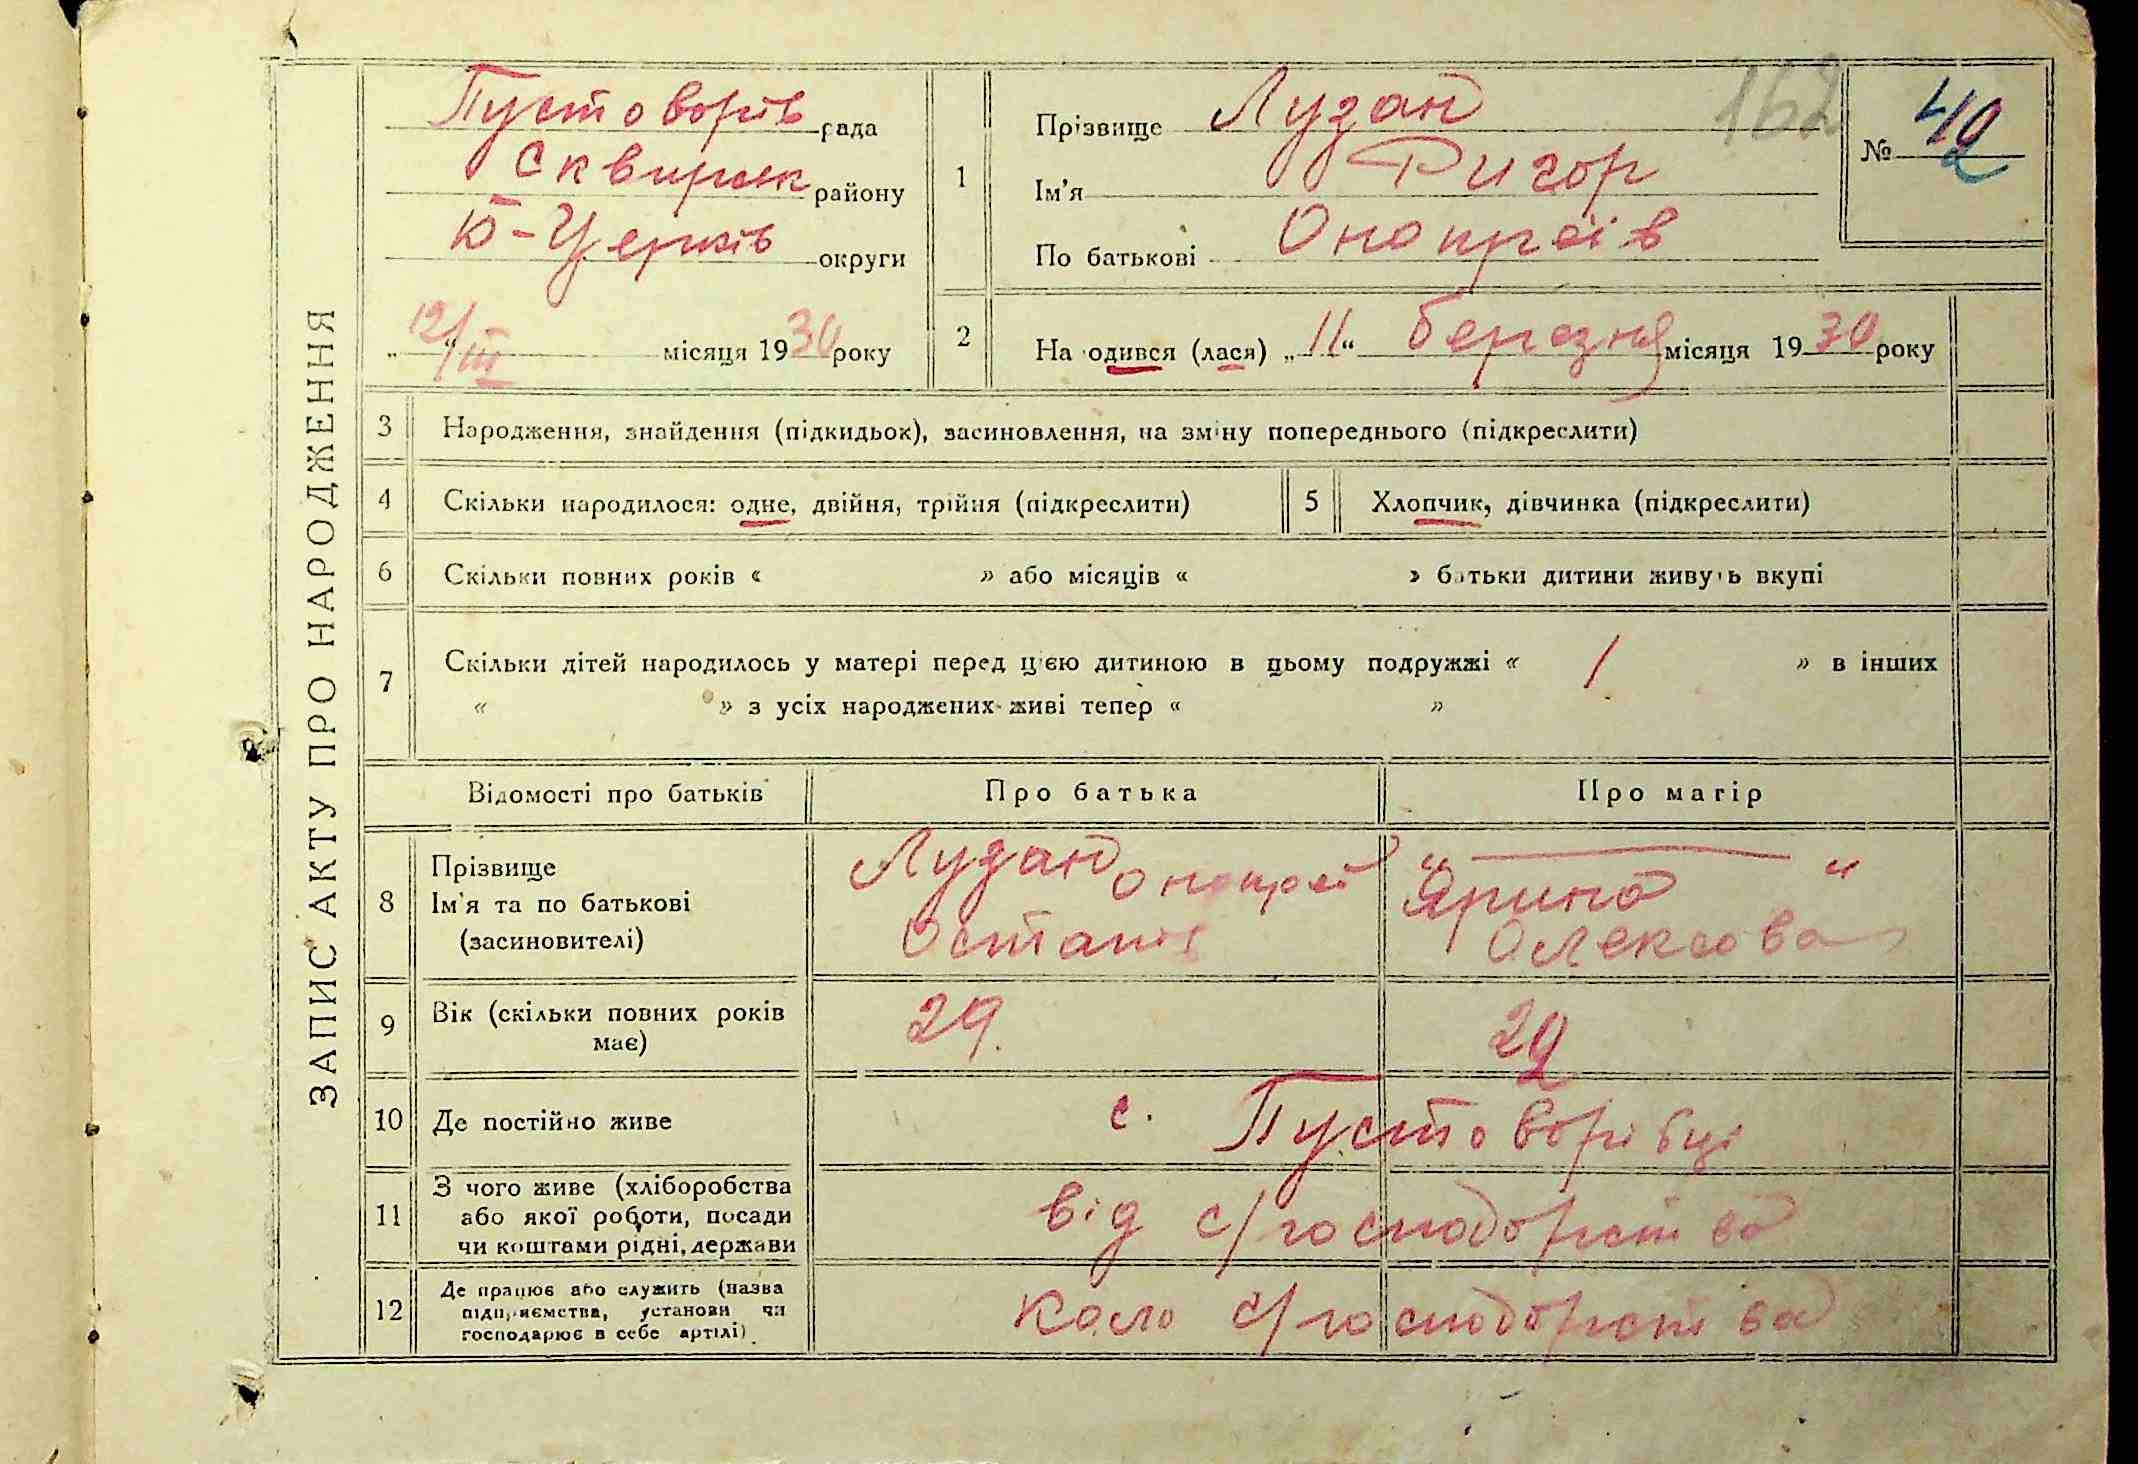 ЗАПИС АКТУ ПРО НАРОДЖЕННЯ
Пустоворів рада
Сквирськ району
Б-Церків округи
"12/III" місяця 1930 року
162
№ 42
1
Прізвище Лузан
Ім'я Григор
По батькові Онопріїв
2
Народився (лася) „11“ березня місяця 1930 року
3 Народження, знайдення (підкидьок), засиновлення, на зміну попереднього (підкреслити)
4 Скільки народилося: одне, двійня, трійня (підкреслити)
5 Хлопчик, дівчинка (підкреслити)
6 Скільки повних років « » або місяців « » батьки дитини живуть вкупі
7 Скільки дітей народилось у матері перед цією дитиною в цьому подружжі « 1 » в інших
« » з усіх народжених живі тепер « »
Відомості про батьків Про батька Про матір
8 Прізвище
Ім'я та по батькові
(засиновителі)
Лузан Онопрій
Остапів
" — "
Ярина
Олексова
9 Вік (скільки повних років
має)
29. 29
10 Де постійно живе с. Пустоворівці
11 З чого живе (хліборобства
або якої роботи, посади
чи коштами рідні, держави
від с/господарства
12 Де працює або служить (назва
підприємства, установи чи
господарює в себе артілі)
коло с/господарства